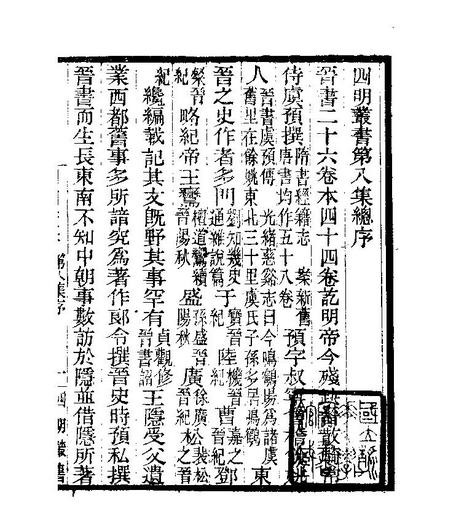 四明叢書第八集總序
晉書二十六卷本四十四卷訖明帝今殘缺晉散騎常
侍虞預撰隋書經籍志 案新舊唐書均作五十八卷預字叔
人晉書虞預傳 光緒慈谿志曰今鳴鶴場為諸虞舊里在餘姚東北三十里虞氏子孫多居鳴鶴東
晉之史作者多門劉知幾史通雜說篇于寶晉紀陸機晉紀曹嘉之晉紀鄧
粲晉紀略紀帝王鸞檀道鸞續晉陽秋盛孫盛晉陽秋廣徐廣晉紀松裴松之晉紀
纔編載記其文旣野其事罕有貞觀修晉書詔王隱受父遺
業西都舊事多所諳究為著作郎令撰晉史時預私撰
晉書而生長東南不知中朝事數訪於隱並借隱所著
第八集序
一
四明叢書